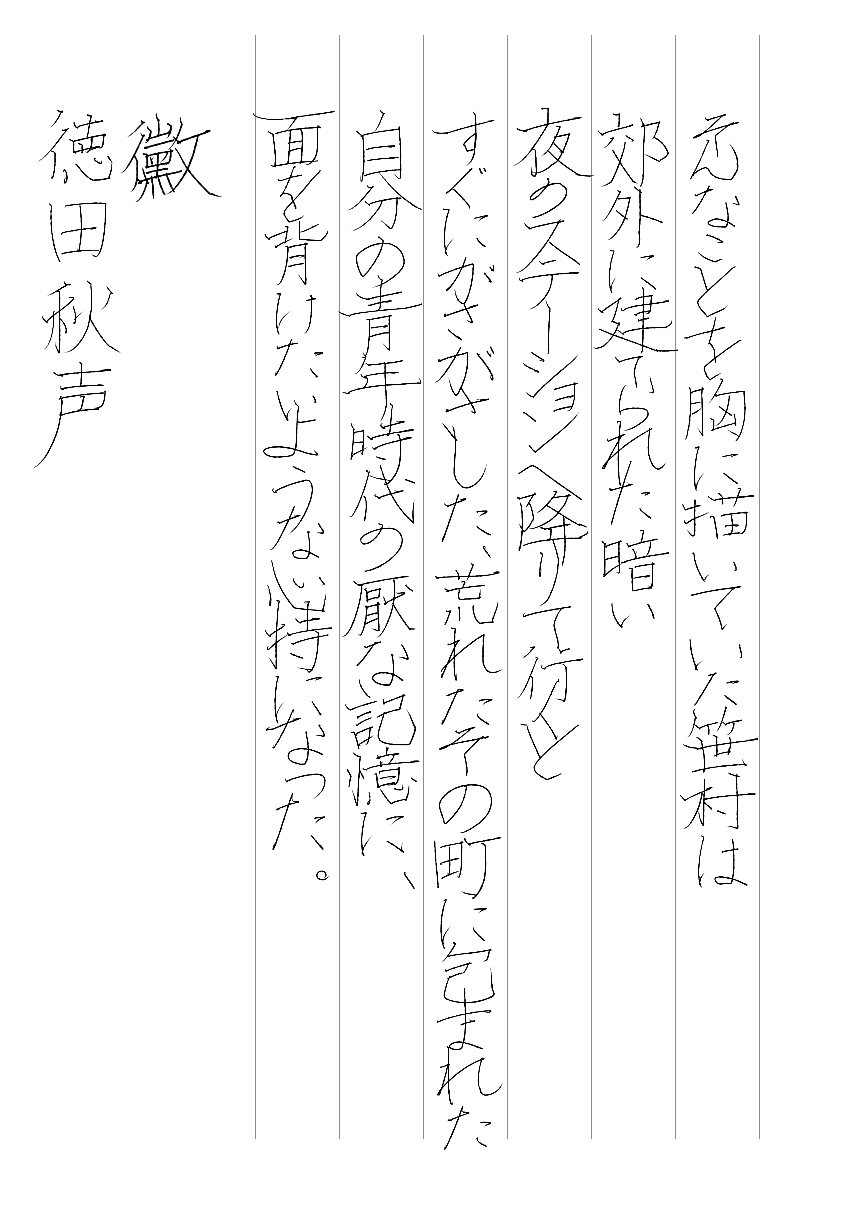 そんなことを胸に描いていた笹村は
郊外に建てられた暗い
夜のステーションへ降りて行くと
すぐにがさがさした、荒れたその町に包まれた
自分の青年時代の厭な記憶に、
面を背けたいような心持になった。
黴
徳田秋声